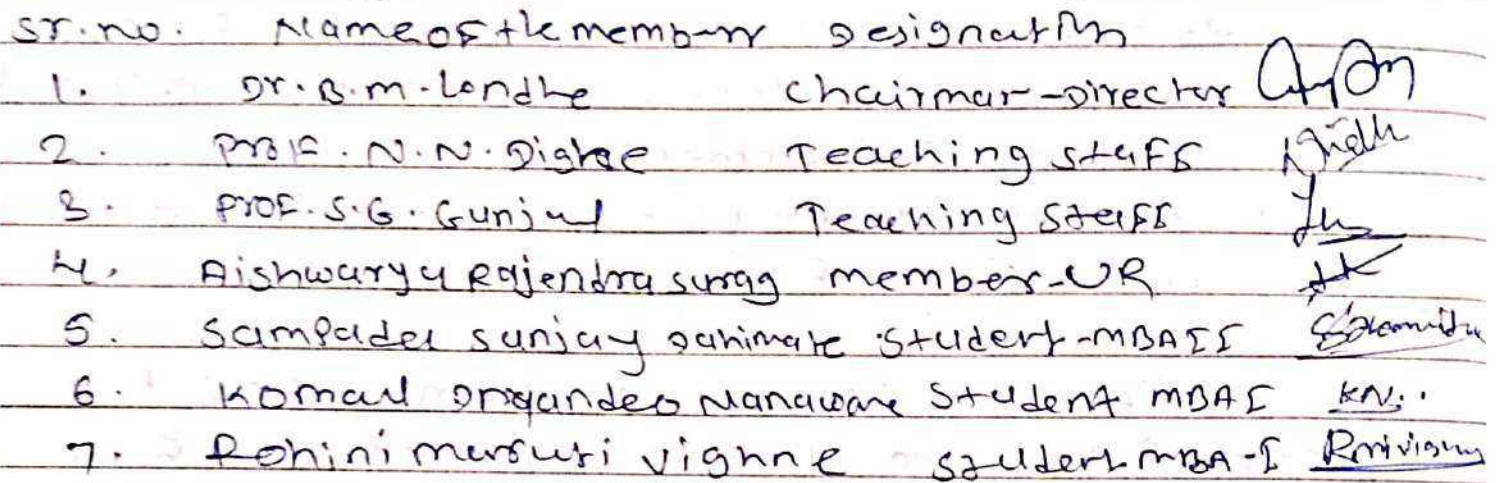 Sr. no. Name of the member Designation
1. Dr. B. M. Londhe Chairman-Director
2. Prof. N. N. Dighee Teaching Staff
3. Prof. S. G. Gunjal Teaching Staff
4. Aishwarya Rajendra member-UR
5. Sampada Sanjay Dahimate Student-MBA II
6. Komal Dnyandeo Nanaware Student MBA I KN.
7. Rohini maruti vighne Student MBA-I